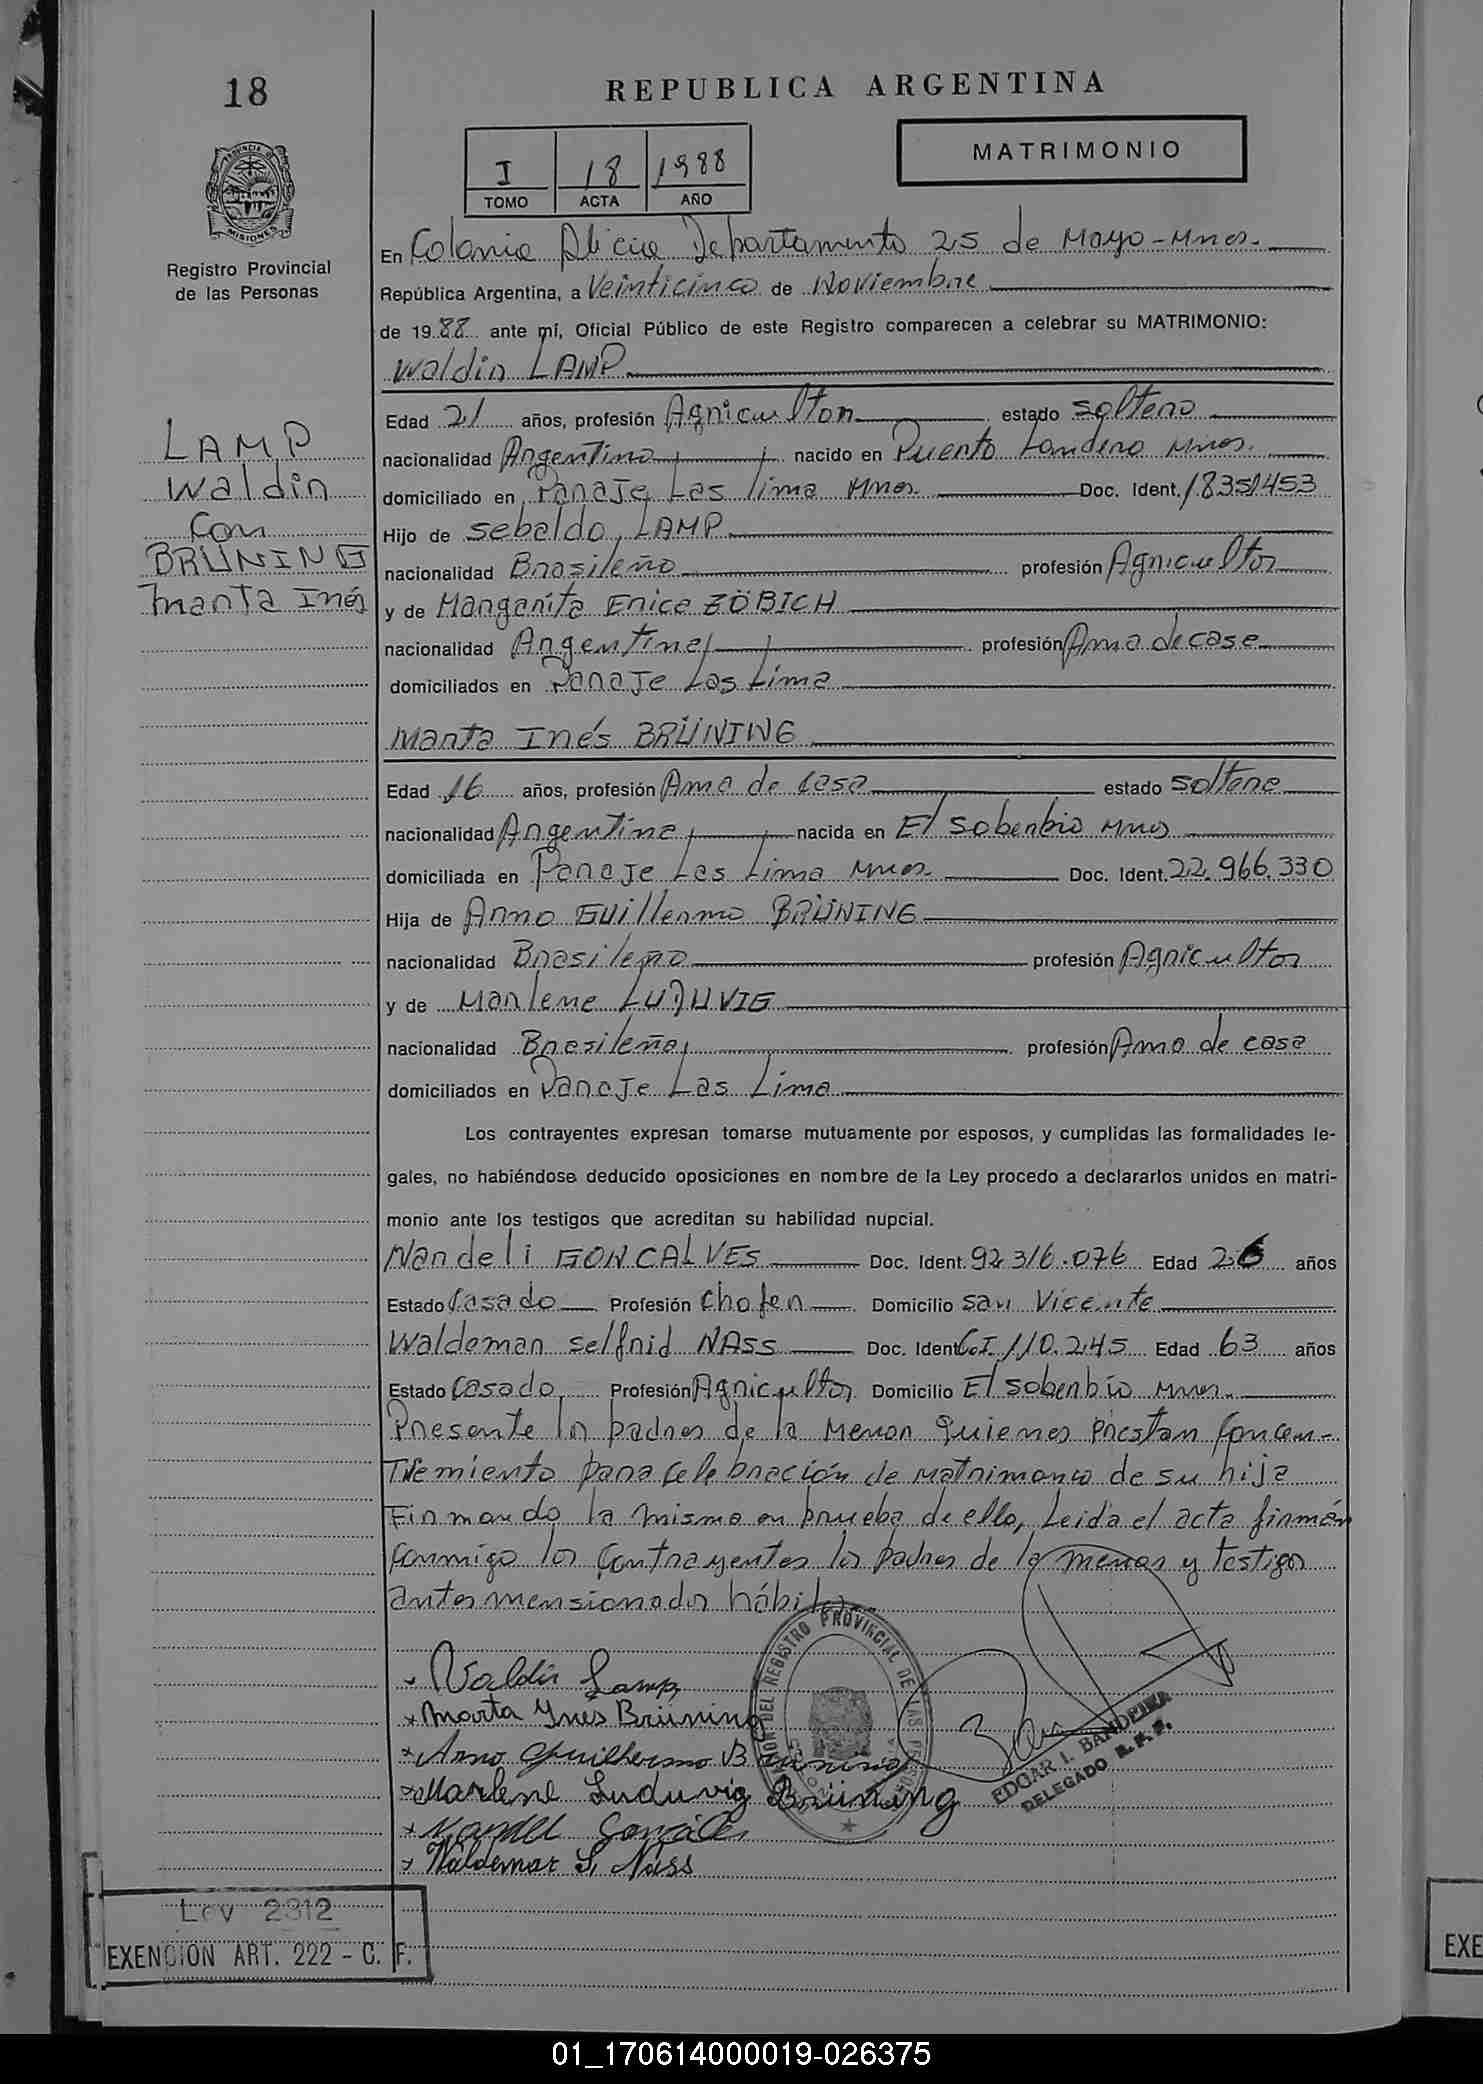 18
REPUBLICA ARGENTINA
MATRIMONIO
I 18 1988
TOMO ACTA AÑO
PROVINCIA DE
MISIONES
Registro Provincial
de las Personas
En Colonia Alicia Departamento 25 de Mayo - Mnes.
República Argentina, a Veinticinco de Noviembre
de 19 88 ante mí, Oficial Público de este Registro comparecen a celebrar su MATRIMONIO:
Waldin LAMP
LAMP
Waldin
Con
BRÜNING
Marta Inés
Edad 21 años, profesión Agricultor estado soltero
nacionalidad Argentino nacido en Puerto Londero Mnes.
domiciliado en Paraje Las Lima Mnes. Doc. Ident. 18351453
Hijo de Sebaldo LAMP
nacionalidad Brasileño profesión Agricultor
y de Margarita Erice ZÖBICH
nacionalidad Argentina profesión Ama de casa
domiciliados en Paraje Las Lima
Marta Inés BRÜNING
Edad 16 años, profesión Ama de casa estado soltera
nacionalidad Argentina nacida en El Soberbio Mnes
domiciliada en Paraje Las Lima Mnes. Doc. Ident. 22.966.330
Hija de Arno Guillermo BRÜNING
nacionalidad Brasileño profesión Agricultor
y de Marlene LUDUVIG
nacionalidad Brasileña profesión Ama de casa
domiciliados en Paraje Las Lima
Los contrayentes expresan tomarse mutuamente por esposos, y cumplidas las formalidades le-
gales, no habiéndose deducido oposiciones en nombre de la Ley procedo a declararlos unidos en matri-
monio ante los testigos que acreditan su habilidad nupcial.
Nandeli GONCALVES Doc. Ident. 92.316.076 Edad 26 años
Estado Casado Profesión Chofer Domicilio San Vicente
Waldemar Selfrid NASS Doc. Ident. C.I. 110.245 Edad 63 años
Estado Casado Profesión Agricultor Domicilio El Soberbio Mnes.
Presente los padres de la Menor quienes prestan Concen-
timiento para celebración de matrimonio de su hija
Firmando la misma en prueba de ello, Leida el acta firmán
Conmigo los Contrayentes los padres de la menor y testigos
antes mensionados hábiles
x Waldin Lamp
x Marta Ynes Brüning
x Arno Guilhermo Brüning
x Marlene Luduvig Brüning
x Nandeli Gonçalves
x Waldemar S. Nass
DEL REGISTRO PROVINCIAL DE LAS
EDGAR I. BANDEIRA
DELEGADO R. P. P.
Ley 2312
EXENCIÓN ART. 222 - C. F.
EXE
01_170614000019-026375